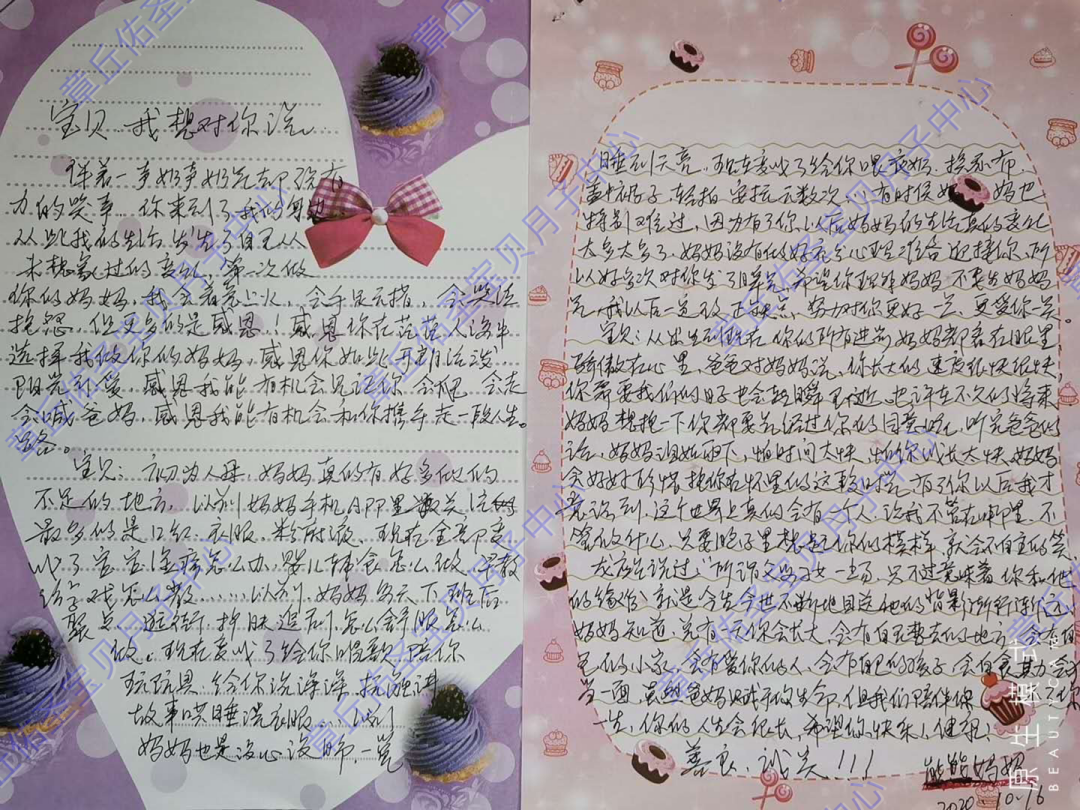 宝贝 我想对你说
伴着一
办的哭声 你来到了我的身边
从此我的生活发生了自己从
未想象过的变化, 第一次做
你的妈妈, 我会着急上火, 会手足无措, 会哭泣
抱怨, 但更多的是感恩, 感恩你在茫茫人海中
选择我做你的妈妈, 感恩你如此开朗活泼
阳光可爱, 感恩我能有机会见证你会爬, 会走
会喊爸妈, 感恩我能有机会和你携手走一段人生
路。
宝贝: 初为人母, 妈妈真的有好多做的
不足的地方, 以前妈妈手机APP里关注
最多的是口红, 衣服, 粉底液, 现在全部变
成了宝宝怎么办, 婴儿辅食怎么做, 早教
游戏怎么做...... 以前, 妈妈每天下班后
聚点, 逛街, 护肤追剧怎么舒服怎么
做。现在变成了给你唱歌陪你
玩玩具, 给你洗澡澡, 抚触讲
故事哄睡洗衣服... 以前
妈妈也是没心没肺一觉
睡到天亮, 现在变成了给你喂夜奶, 换尿布,
盖被子, 轻拍安抚无数次, 有时候妈妈也
特别难过, 因为有了你, 以后妈妈的生活真的变化
太多太多了, 妈妈没有做好充分心理准备迎接你, 所
以好多次对你发了脾气, 希望你理解妈妈不要生妈妈
气, 我以后一定改正缺点, 努力对你更好一点, 更爱你一点
宝贝: 从出生到现在你的所有进步妈妈都看在眼里
骄傲在心里, 爸爸对妈妈说, 你长大的速度很快很快,
你需要我们的日子也会转瞬即逝, 也许在不久的将来
妈妈想抱一下你都要先经过你的同意呢, 听完爸爸的
话, 妈妈泪如雨下, 怕时间太快, 怕你成长太快, 妈妈
会好好珍惜抱你在怀里的这段时光, 有了你以后我才
意识到, 这个世界上真的会有一个人, 让我不管在哪里, 不
管做什么, 只要脑子里想起你的模样, 就会不自主的笑,
龙应台说过“所谓父母子女一场, 只不过意味着, 你和他
的缘分就是今生今世不断地目送他的背影渐行渐远
妈妈知道, 总有一天你会长大, 会有自己要去的地方, 会有自
己的小家, 会有爱你的人, 会有自己的孩子, 会
当一面, 虽然爸妈赋予你生命, 但我们陪伴你
一生, 你的人生会很长, 希望你快乐, 健康,
善良, 诚实!!!
妈妈
2020.10.16
章丘佑圣宝贝月子中心
原生操作
BEAUTYCAM